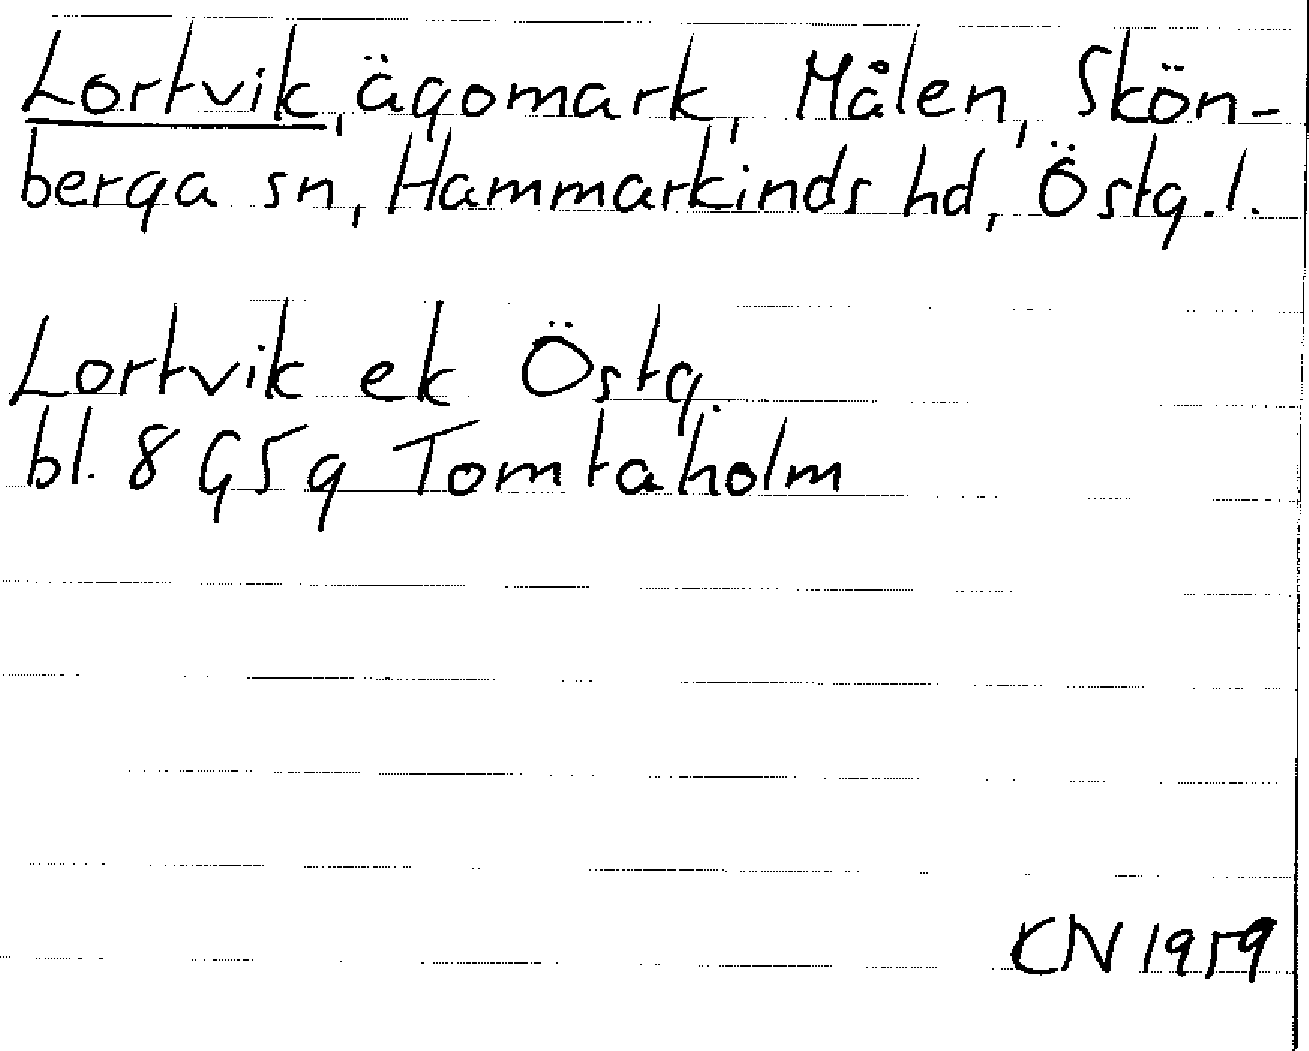 Lortvik, ägomark, Målen, Skön-
berga sn, Hammarkinds hd, Östg.l.
Lortvik ek Östg.
bl. 8 G5g Tomtaholm
CN 1959